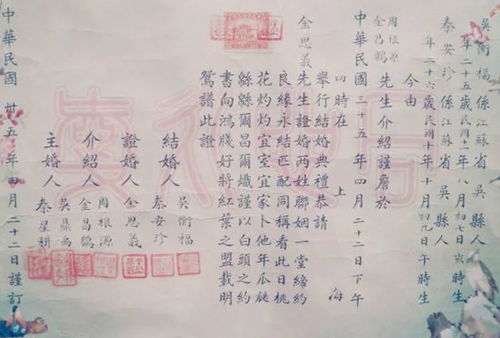 吳衡福 係江蘇省 吳縣人
年二十五歲民國十一八月初七寅時生
秦安珍 係江蘇省 吳縣人
年二十六歲民國十年十月初九日午時生
今由
周根源
金昌鶴
先生介紹謹詹於
中華民國三十五年四月二十二日下午
四時在 上海
舉行結婚典禮恭請
金思義
先生證婚兩姓聯姻一堂締約
良緣永結匹配同稱看此日桃
花灼灼宜室宜家卜他年瓜瓞
緜緜爾昌爾熾謹以白頭之約
書向鴻牋好將紅葉之盟載明
鴛譜此證
結婚人 吳衡福
秦安珍
證婚人 金思義
介紹人 周根源
金昌鶴
主婚人 吳
秦星耕
中華民國卅五年四月二十二日謹訂